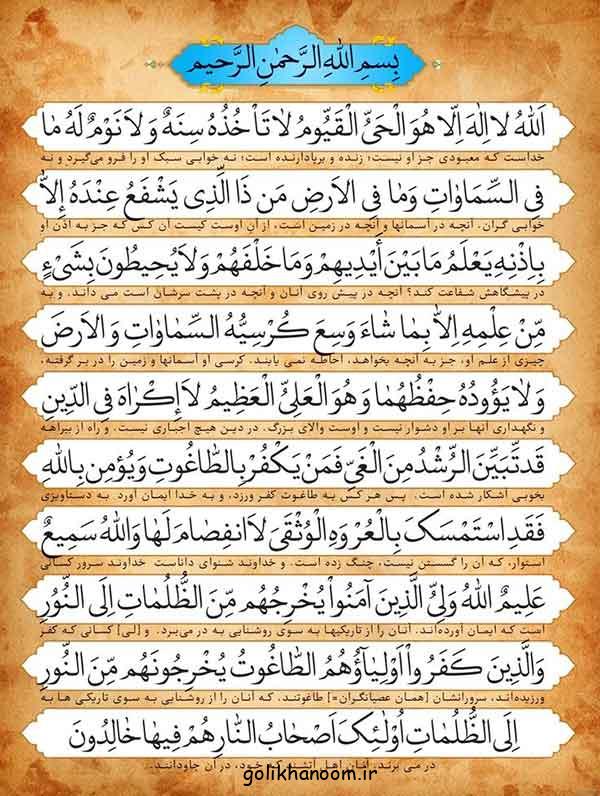 بِسْمِ اللهِ الرَّحمٰنِ الرَّحیمِ
اَللهُ لا اِلٰهَ اِلّا هُوَ الْحَیُّ الْقَیُّومُ لا تَأْخُذُهُ سِنَةٌ وَ لا نَوْمٌ لَهُ مٰا
خداست که معبودی جز او نیست؛ زنده و برپادارنده است؛ نه خوابی سبک او را فرو می‌گیرد و نه
فِی السَّمٰاوٰاتِ وَمٰا فِی الاَرضِ مَن ذَا الَّذِی یَشْفَعُ عِنْدَهُ اِلاّٰ
خوابی گران. آنچه در آسمانها و آنچه در زمین است، از آنِ اوست کیست آن کس که جز به اذن او
بِاِذْنِهِ یَعْلَمُ مٰا بَیْنَ أَیْدِیهِمْ وَ مٰا خَلْفَهُمْ وَ لاٰ یُحِیطُونَ بِشَیْءٍ
در پیشگاهش شفاعت کند؟ آنچه در پیش روی آنان و آنچه در پشت سرشان است می داند. و به
مِّنْ عِلْمِهِ اِلاّٰ بِمٰا شٰاءَ وَسِعَ کُرْسِیُّهُ السَّمٰاوٰاتِ وَ الاَرضَ
چیزی از علم او، جز به آنچه بخواهد، احاطه نمی یابند. کرسی او آسمانها و زمین را در بر گرفته،
وَ لاٰ یَؤُودُهُ حِفْظُهُمٰا وَ هُوَ الْعَلِیُّ الْعَظِیمُ لاٰ إِکْرٰاهَ فِی الدِّینِ
و نگهداری آنها بر او دشوار نیست و اوست والای بزرگ. در دین هیچ اجباری نیست. و راه از بیراهه
قَد تَّبَیَّنَ الرُّشْدُ مِنَ الْغَیِّ فَمَنْ یَکْفُرْ بِالطّٰاغُوتِ وَ یُؤْمِن بِاللهِ
بخوبی آشکار شده است. پس هر کس به طاغوت کفر ورزد، و به خدا ایمان آورد به دستاویزی
فَقَدِ اسْتَمْسَکَ بِالْعُرْوَهِ الْوُثْقَیٰ لاَ انفِصٰامَ لَهٰا وَاللهُ سَمِیعٌ
استوار، که آن را گسستن نیست، چنگ زده است. و خداوند شنوای داناست خداوند سرور کسانی
عَلِیمٌ اللهُ وَلِیُّ الَّذِینَ آمَنُواْ یُخْرِجُهُم مِّنَ الظُّلُمٰاتِ اِلَی النُّوُرِ
است که ایمان آورده‌اند. آنان را از تاریکیها به سوی روشنایی به در می‌برد. و [لی] کسانی که کفر
وَالَّذِینَ کَفَرُواْ اَوْلِیٰآؤُهُمُ الطّٰاغُوتُ یُخْرِجُونَهُم مِّنَ النُّورِ
ورزیده‌اند، سرورانشان [همان عصیانگران=] طاغوتند، که آنان را از روشنایی به سوی تاریکی ها به
اِلَی الظُّلُمٰاتِ اُوْلٰئِکَ اَصْحٰابُ النّٰارِ هُمْ فِیهٰا خٰالِدُونَ
در می برند. آنان اهل آتشند که خود، در آن جاودانند..
golikhanoom.ir